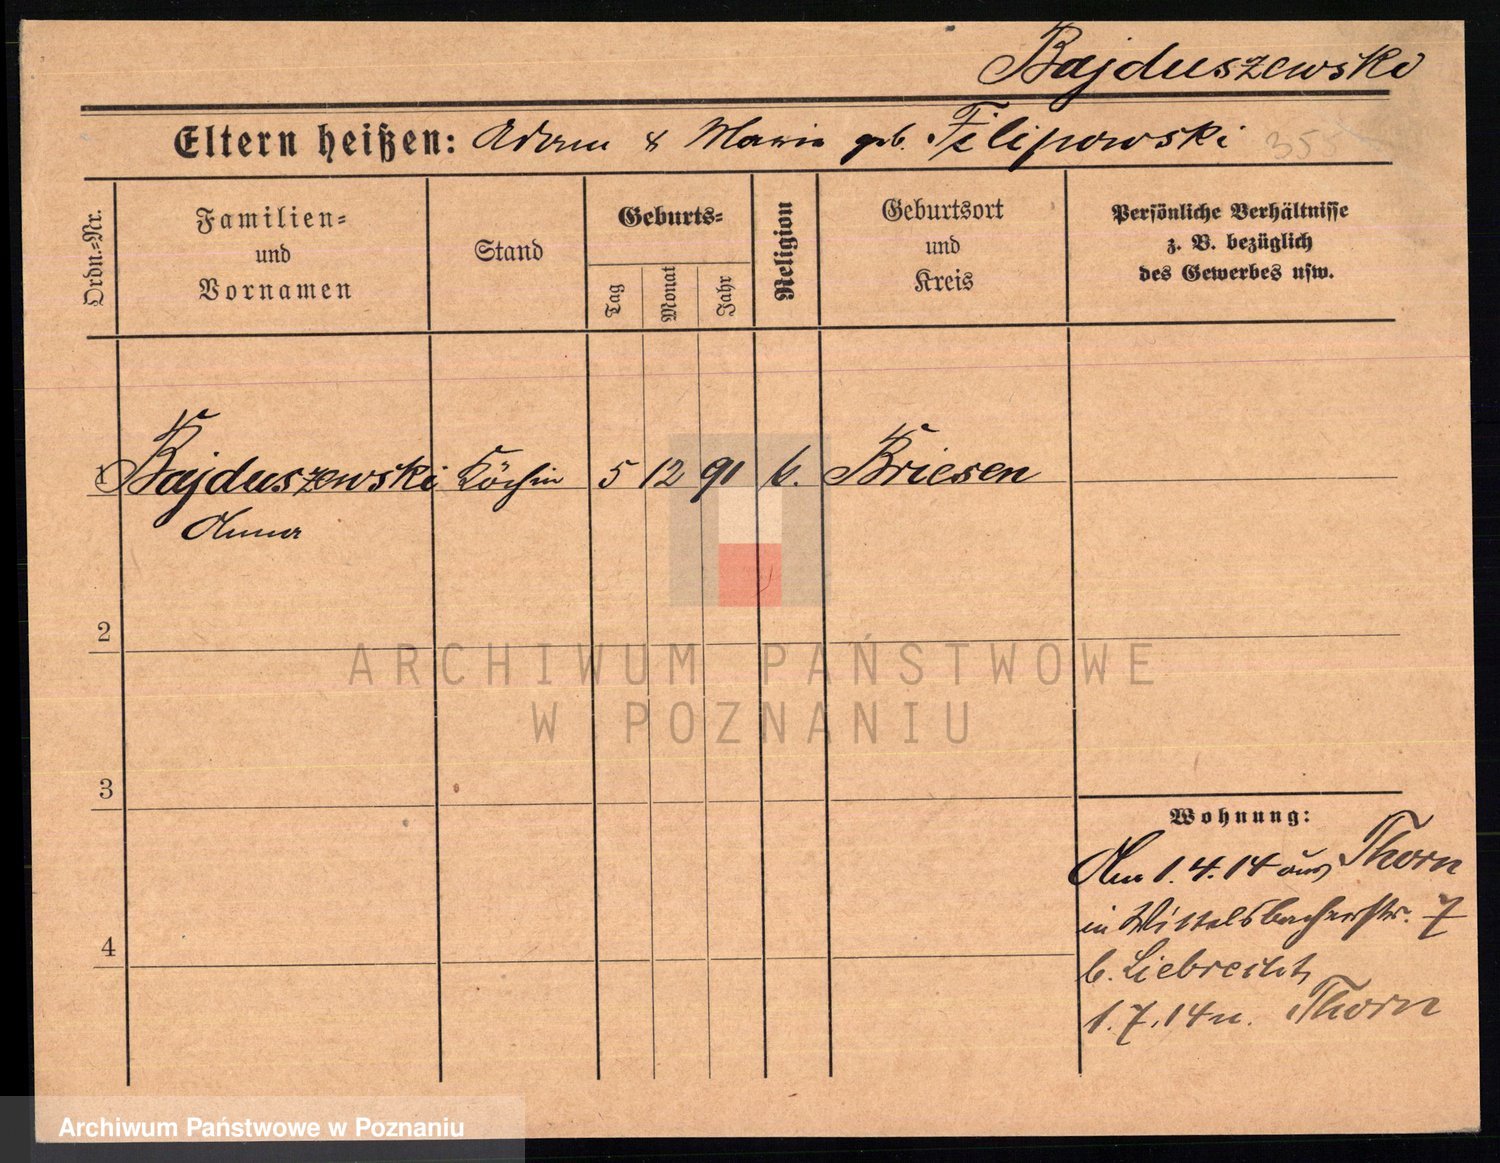 Bajduszewski
Eltern heißen: Adam & Maria geb. Filipowski 355
Ordn.-Nr.
Familien-
und
Vornamen
Stand
Geburts-
Tag
Monat
Jahr
Religion
Geburtsort
und
Kreis
Persönliche Verhältnisse
z. B. bezüglich
des Gewerbes usw.
1 Bajduszewski Köchin 5 12 91 k. Briesen
Anna
2
ARCHIWUM PAŃSTWOWE
W POZNANIU
3
Wohnung:
Am 1.4.14 aus Thorn
in Wittelsbacherstr. 7
b. Liebrecht,
1.7.14 n. Thorn
4
Archiwum Państwowe w Poznaniu